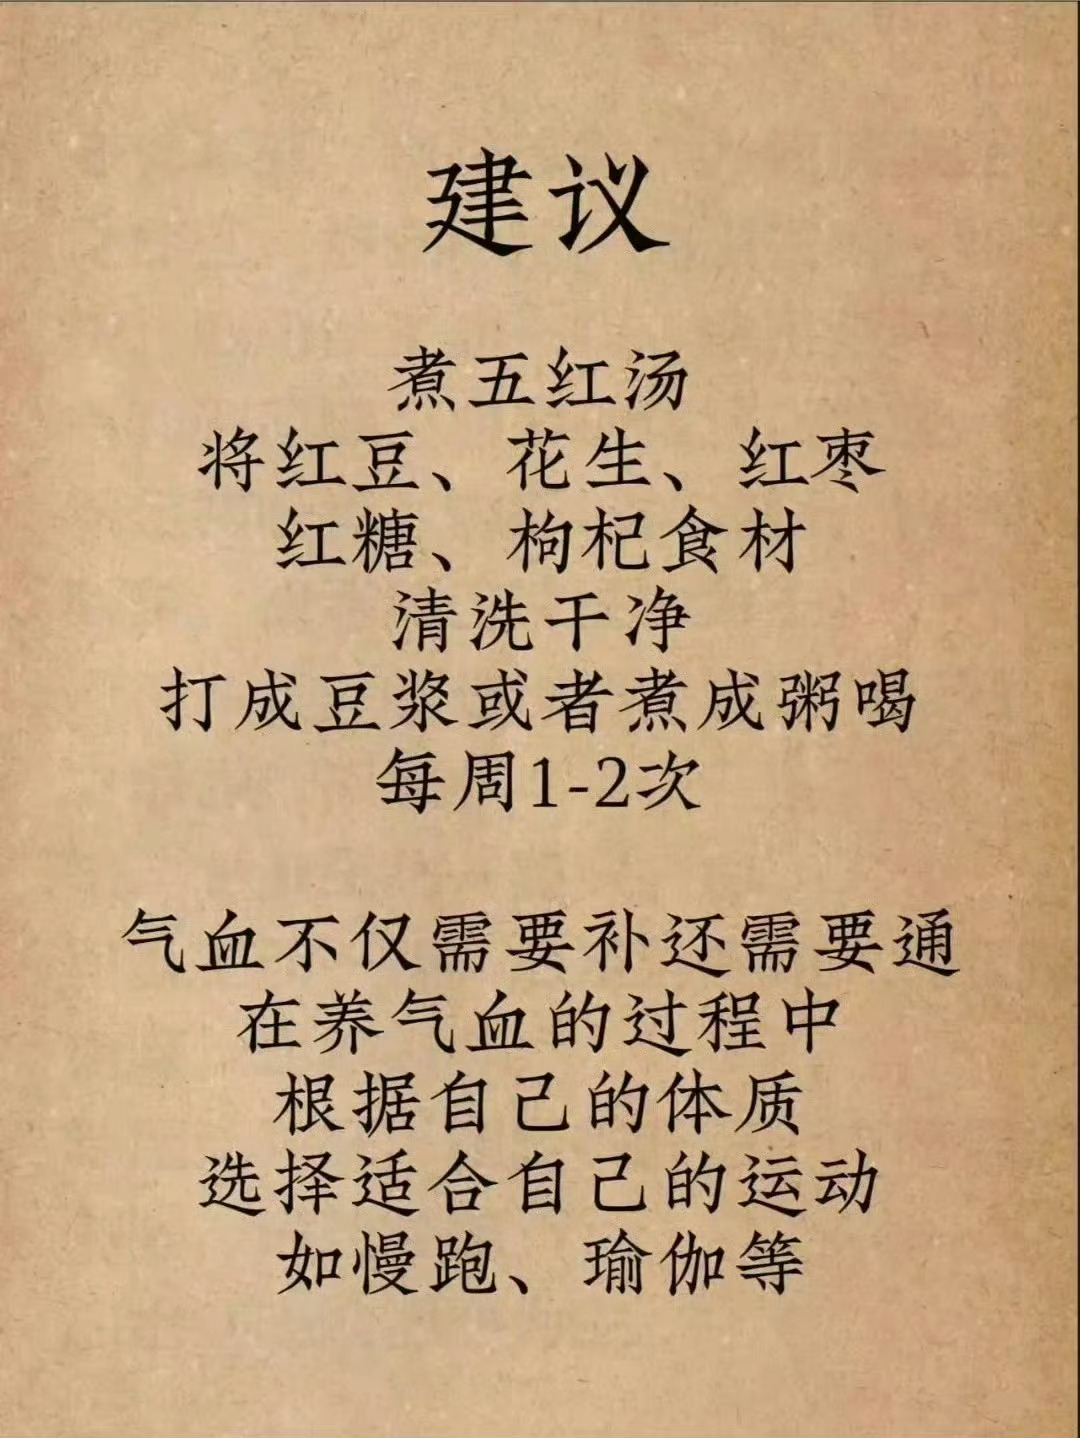 建议
煮五红汤
将红豆、花生、红枣
红糖、枸杞食材
清洗干净
打成豆浆或者煮成粥喝
每周1-2次
气血不仅需要补还需要通
在养气血的过程中
根据自己的体质
选择适合自己的运动
如慢跑、瑜伽等